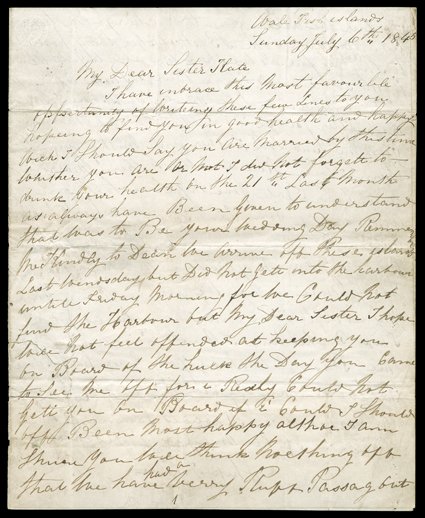 Wale Fish islands
Sunday July 6th 1845
My Dear Sister Kate
I have inbrace this Most favourible
oppertunity of Writing these few Lines to you
hopeing to find you in good health and happy
Wich I Should Say you are Married by this time
Whether you are Or Not I did Not forgete to
drink your health on the 21st Last Month
as always have Been Given to understand
that was to Be your Wedding Day Remmember
Me Kindly to Dean We arrive off These islands
Last Wendsday but Did Not Gete into the harbour
untile Friday Morning for We Could Not
find the Harbour but My Dear Sister I hope
Wile Not feel offended at keeping you
on Board of the huck the Day you Came
to See Me off for i Realy Could Not
Gete you on Board if I Could I Should
off Been Most happy althoe I am
Shure you Wile think Noething off
that We have had a verry Ruff Passag but